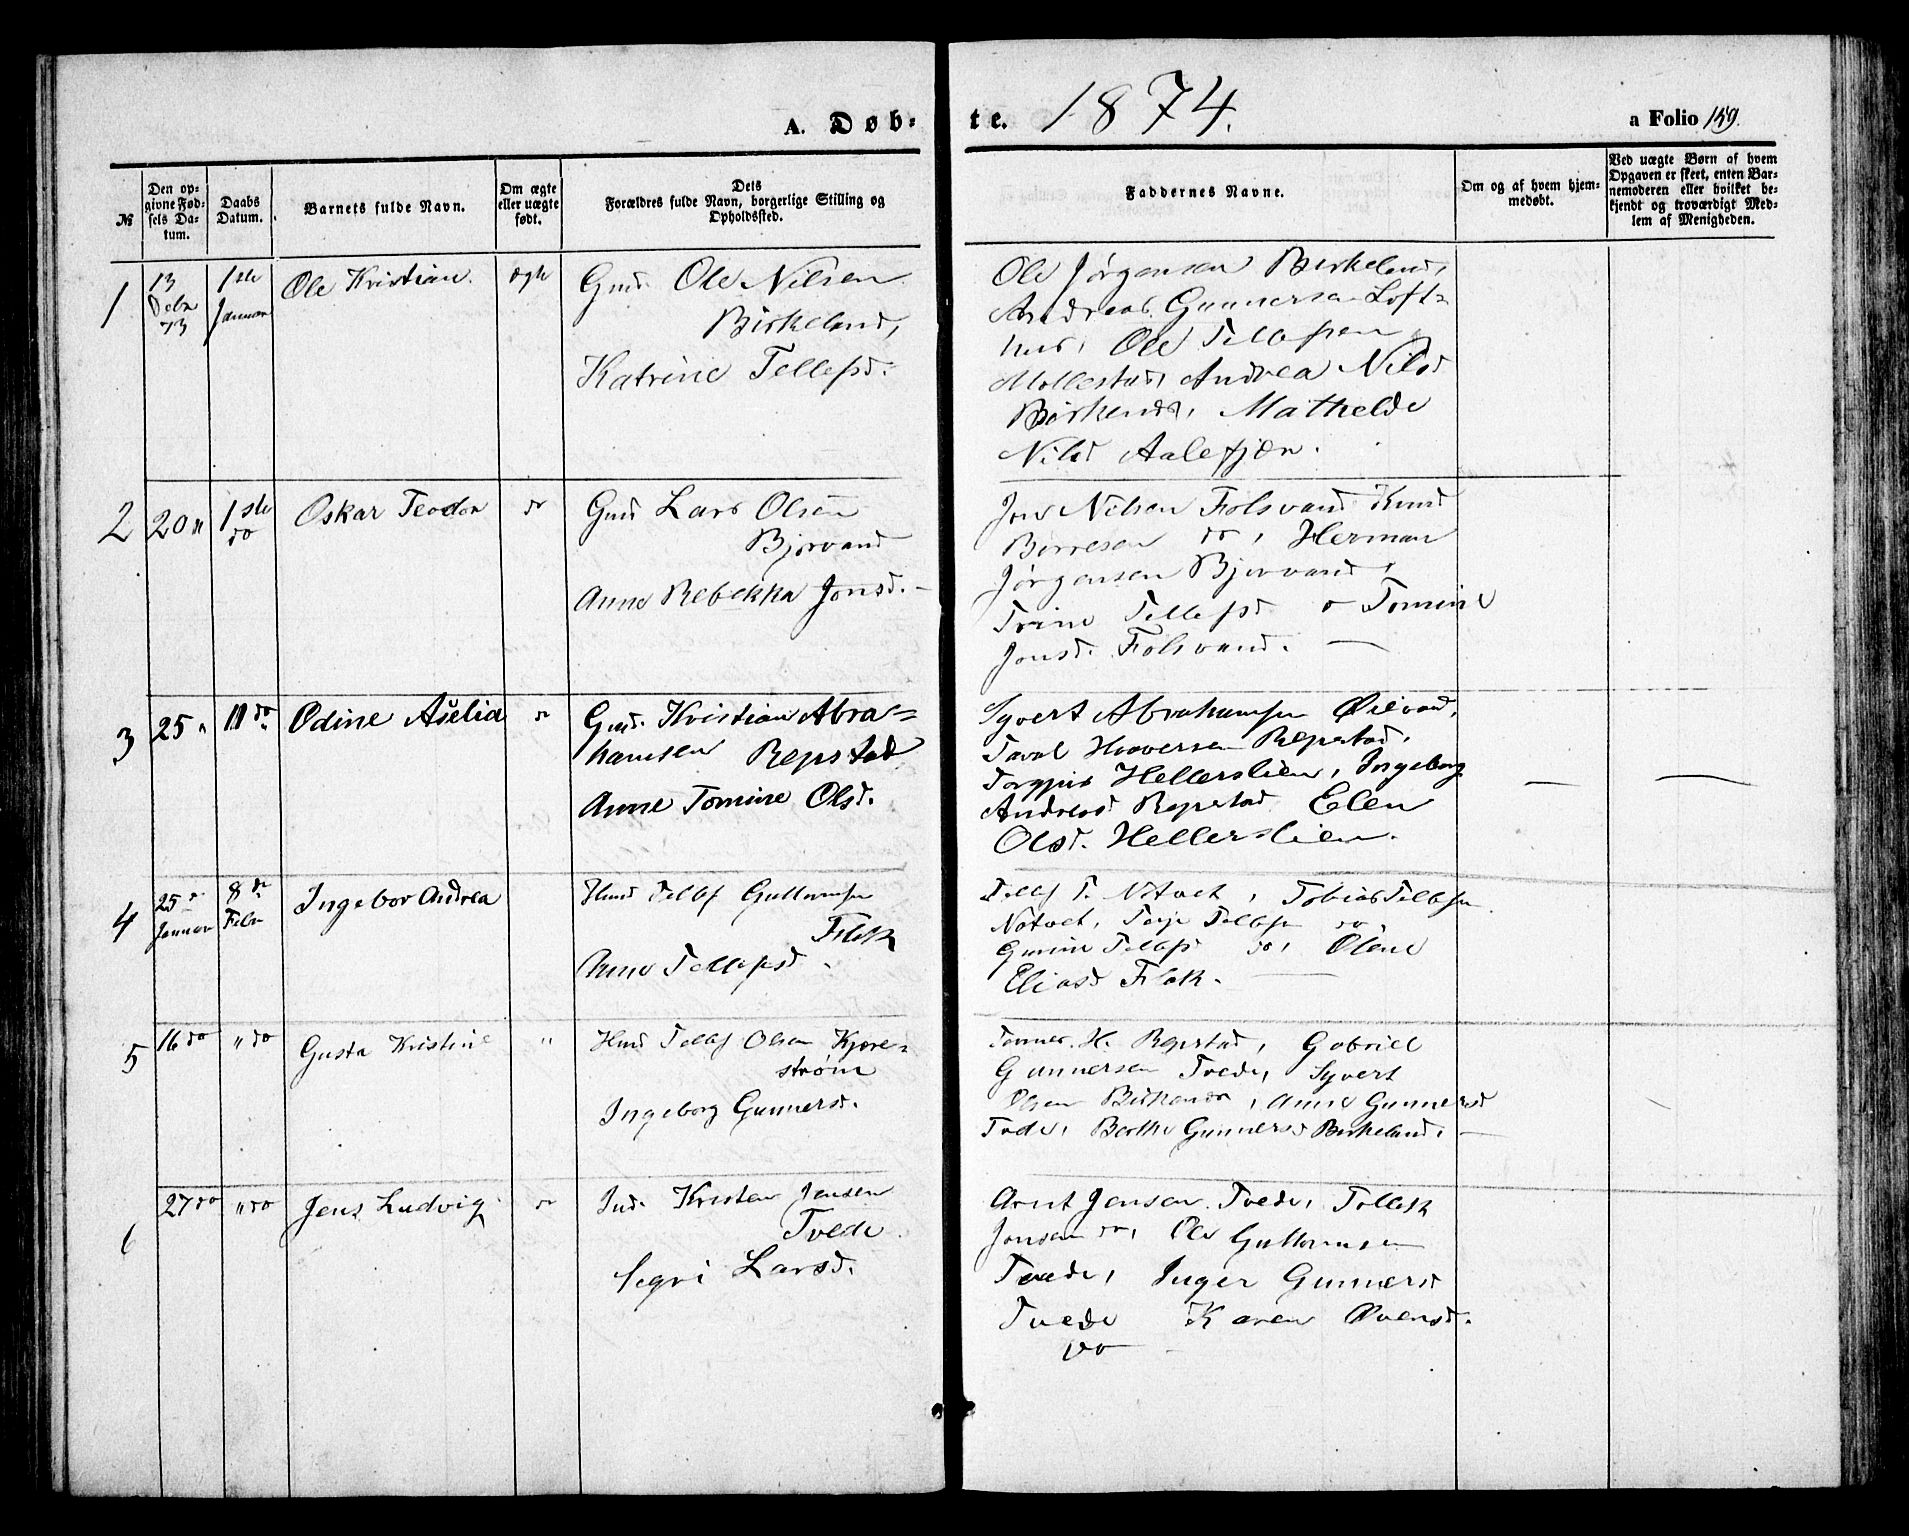 1874.
A. Døb-
te.
a Folio 159.
№
Den op-
givne Fød-
sels Da-
tum.
Daabs
Datum.
Barnets fulde Navn.
Om ægte
eller uægte
født.
Dets
Forældres fulde Navn, borgerlige Stilling og
Opholdssted.
Faddernes Navne.
Om og af hvem hjem-
medøbt.
Ved uægte Børn af hvem
Opgaven er skeet, enten Bar-
nemoderen eller hvilket be-
kjendt og troværdigt Med-
lem af Menigheden.
1
13
73
1ste
Januar
Ole Kristian.
ægte
Gmd. Ole Nilsen
Birkeland,
Katrine Tellefsd.
Ole Jørgensen Birkeland,
Andreas Gunnersen Loft-
hus, Ole Tellefsen
Mollestad, Andrea Nilsd
Birkends, Mathelde
Nilsd Aalefjær.
2
20 "
1ste
do
Oskar Teodor
do
Gmd Lars Olsen
Bjorvand
Anne Rebekka Jonsd. -
Jens Nilsen Folsvand Knud
Børresen do, Herman
Jørgensen Bjorvand,
Trine Tellefsd o Tomine
Jonsd. Folsvand. —
3
25 "
11 do
Odine Aselia
do
Gmd. Kristian Abra=
hamsen Repstad
Anne Tomine Olsd.
Syvert Abrahamsen Øievad,
Taral Hoversen Repstad,
Torgjus Hellerslien, Ingeborg
Andreasd Repstad Elen
Olsd. Hellerslien.
4
25
Januar
8 de
Febr
Ingebor Andrea
Hmd Tellef Guttormsen
Flak
Anne Tellefsd.
Tellef T. Nótvet, Tobias Tellefsen
Notvet, Terje Tellefsen do,
Gunine Tellefsd do, Olene
Eliasd Flak. —
5
16 do
" do
Gusta Kristine
"
Hmd Tellef Olsen Kjore-
strøm
Ingeborg Gunnersd.
Tarmer. H. Repstad, Gabriell
Gunnersen Tvede, Syvert
Olsen Birkends, Anne Gunnersd
Tvede, Berthe Gunnersd Birkeland. —
27 do
" do
Jens Ludvig
do
Ind. Kristen Jensen
Tvede
Segri Larsd.
Arnt Jensen Tvede, Tellef
Jonsen do, Ole Guttormsen
Tvede, Inger Gunnersd
Tvede Karen Øvensd.
do —